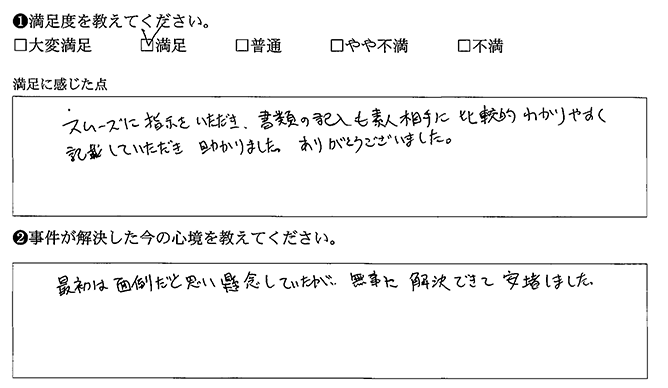 ❶満足度を教えてください。
□大変満足 ☑満足 □普通 □やや不満 □不満
満足に感じた点
スムーズに指示をいただき、書類の記入も素人相手に比較的わかりやすく
記載していただき助かりました。ありがとうございました。
❷事件が解決した今の心境を教えてください。
最初は面倒だと思い懸念していたが、無事に解決できて安堵しました。